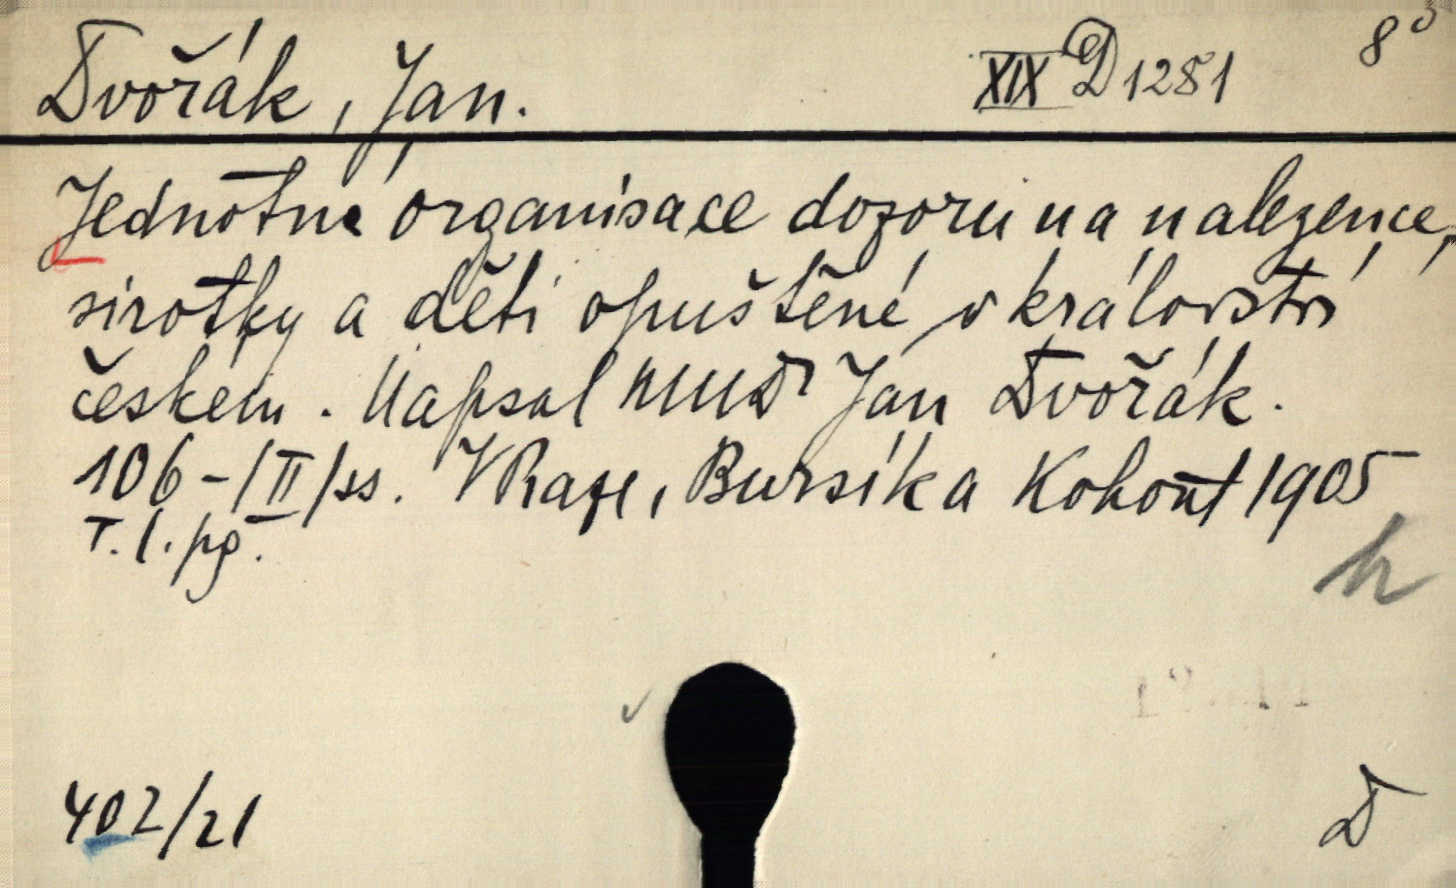 Dvořák, Jan. XIX D 1281 8°
Jednotná organisace dozoru na nalezence,
sirotky a děti opuštěné v království
českém. Napsal MUDr Jan Dvořák.
106-/II/ss. V Praze, Bursík a Kohout 1905
T. l. pg.
h
402/21 D